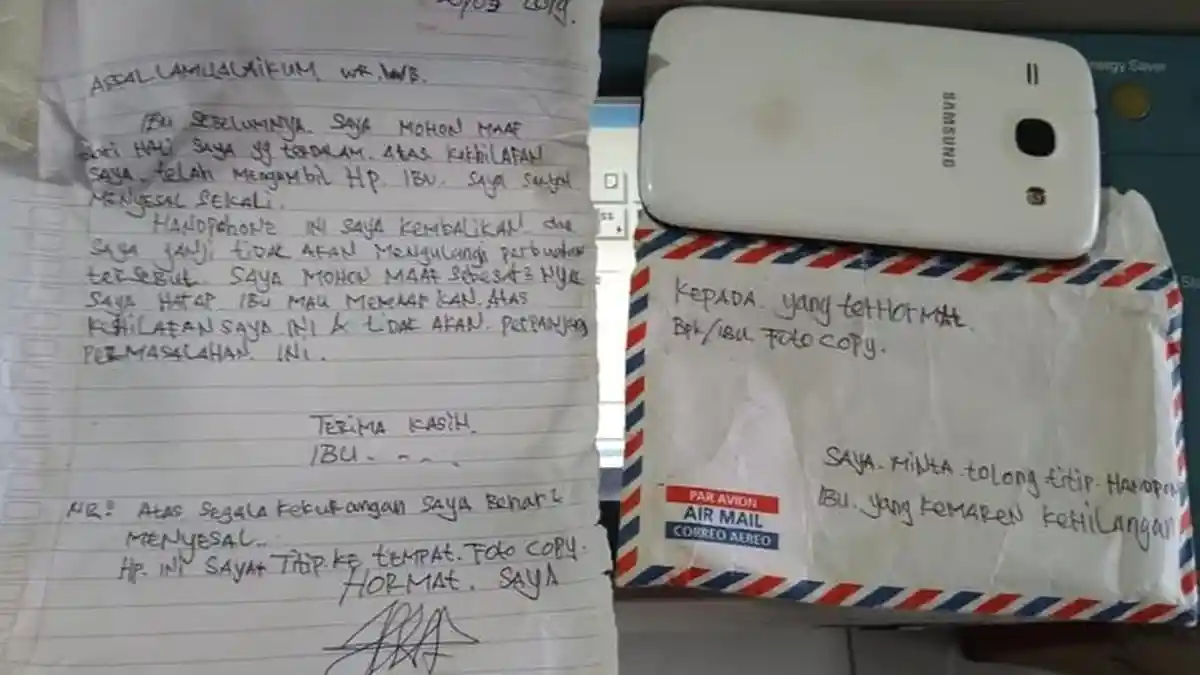 2019.
ASSALLAMUALAIKUM WR. WB.
IBU SEBELUMNYA. SAYA MOHON MAAF
dari HATI SAYA yg terdalam. Atas KEKHILAFAN
SAYA. telah mengambil HP. IBU. SAYA sangat
MENYESAL SEKALI.
HANDPHONE INI SAYA KEMBALIKAN. dan
SAYA JANJI tidak AKAN Mengulangi perbuatan
tersebut. SAYA MOHON MAAF sebesar2 NYA
SAYA HARAP IBU MAU MEMAAFKAN. Atas
KEKHILAFAN SAYA INI & tIDAK AKAN. PERPANJANG
PERMASALAHAN. INI.
TERIMA KASIH.
IBU. - - .
NB: Atas segala kekurangan SAYA Benar2
MENYESAL.
Hp. INI SAYA Titip. KE tempat. Foto COPY.
HORMAT. SAYA
SAMSUNG
Energy Saver
KEPADA. yang terHORMAt.
Bpk/IBU Foto COPY.
SAYA. MINTA. tolong titip. HANDPON
IBU. yang KEMAREN KEHILANGAN
PAR AVION
AIR MAIL
CORREO AEREO